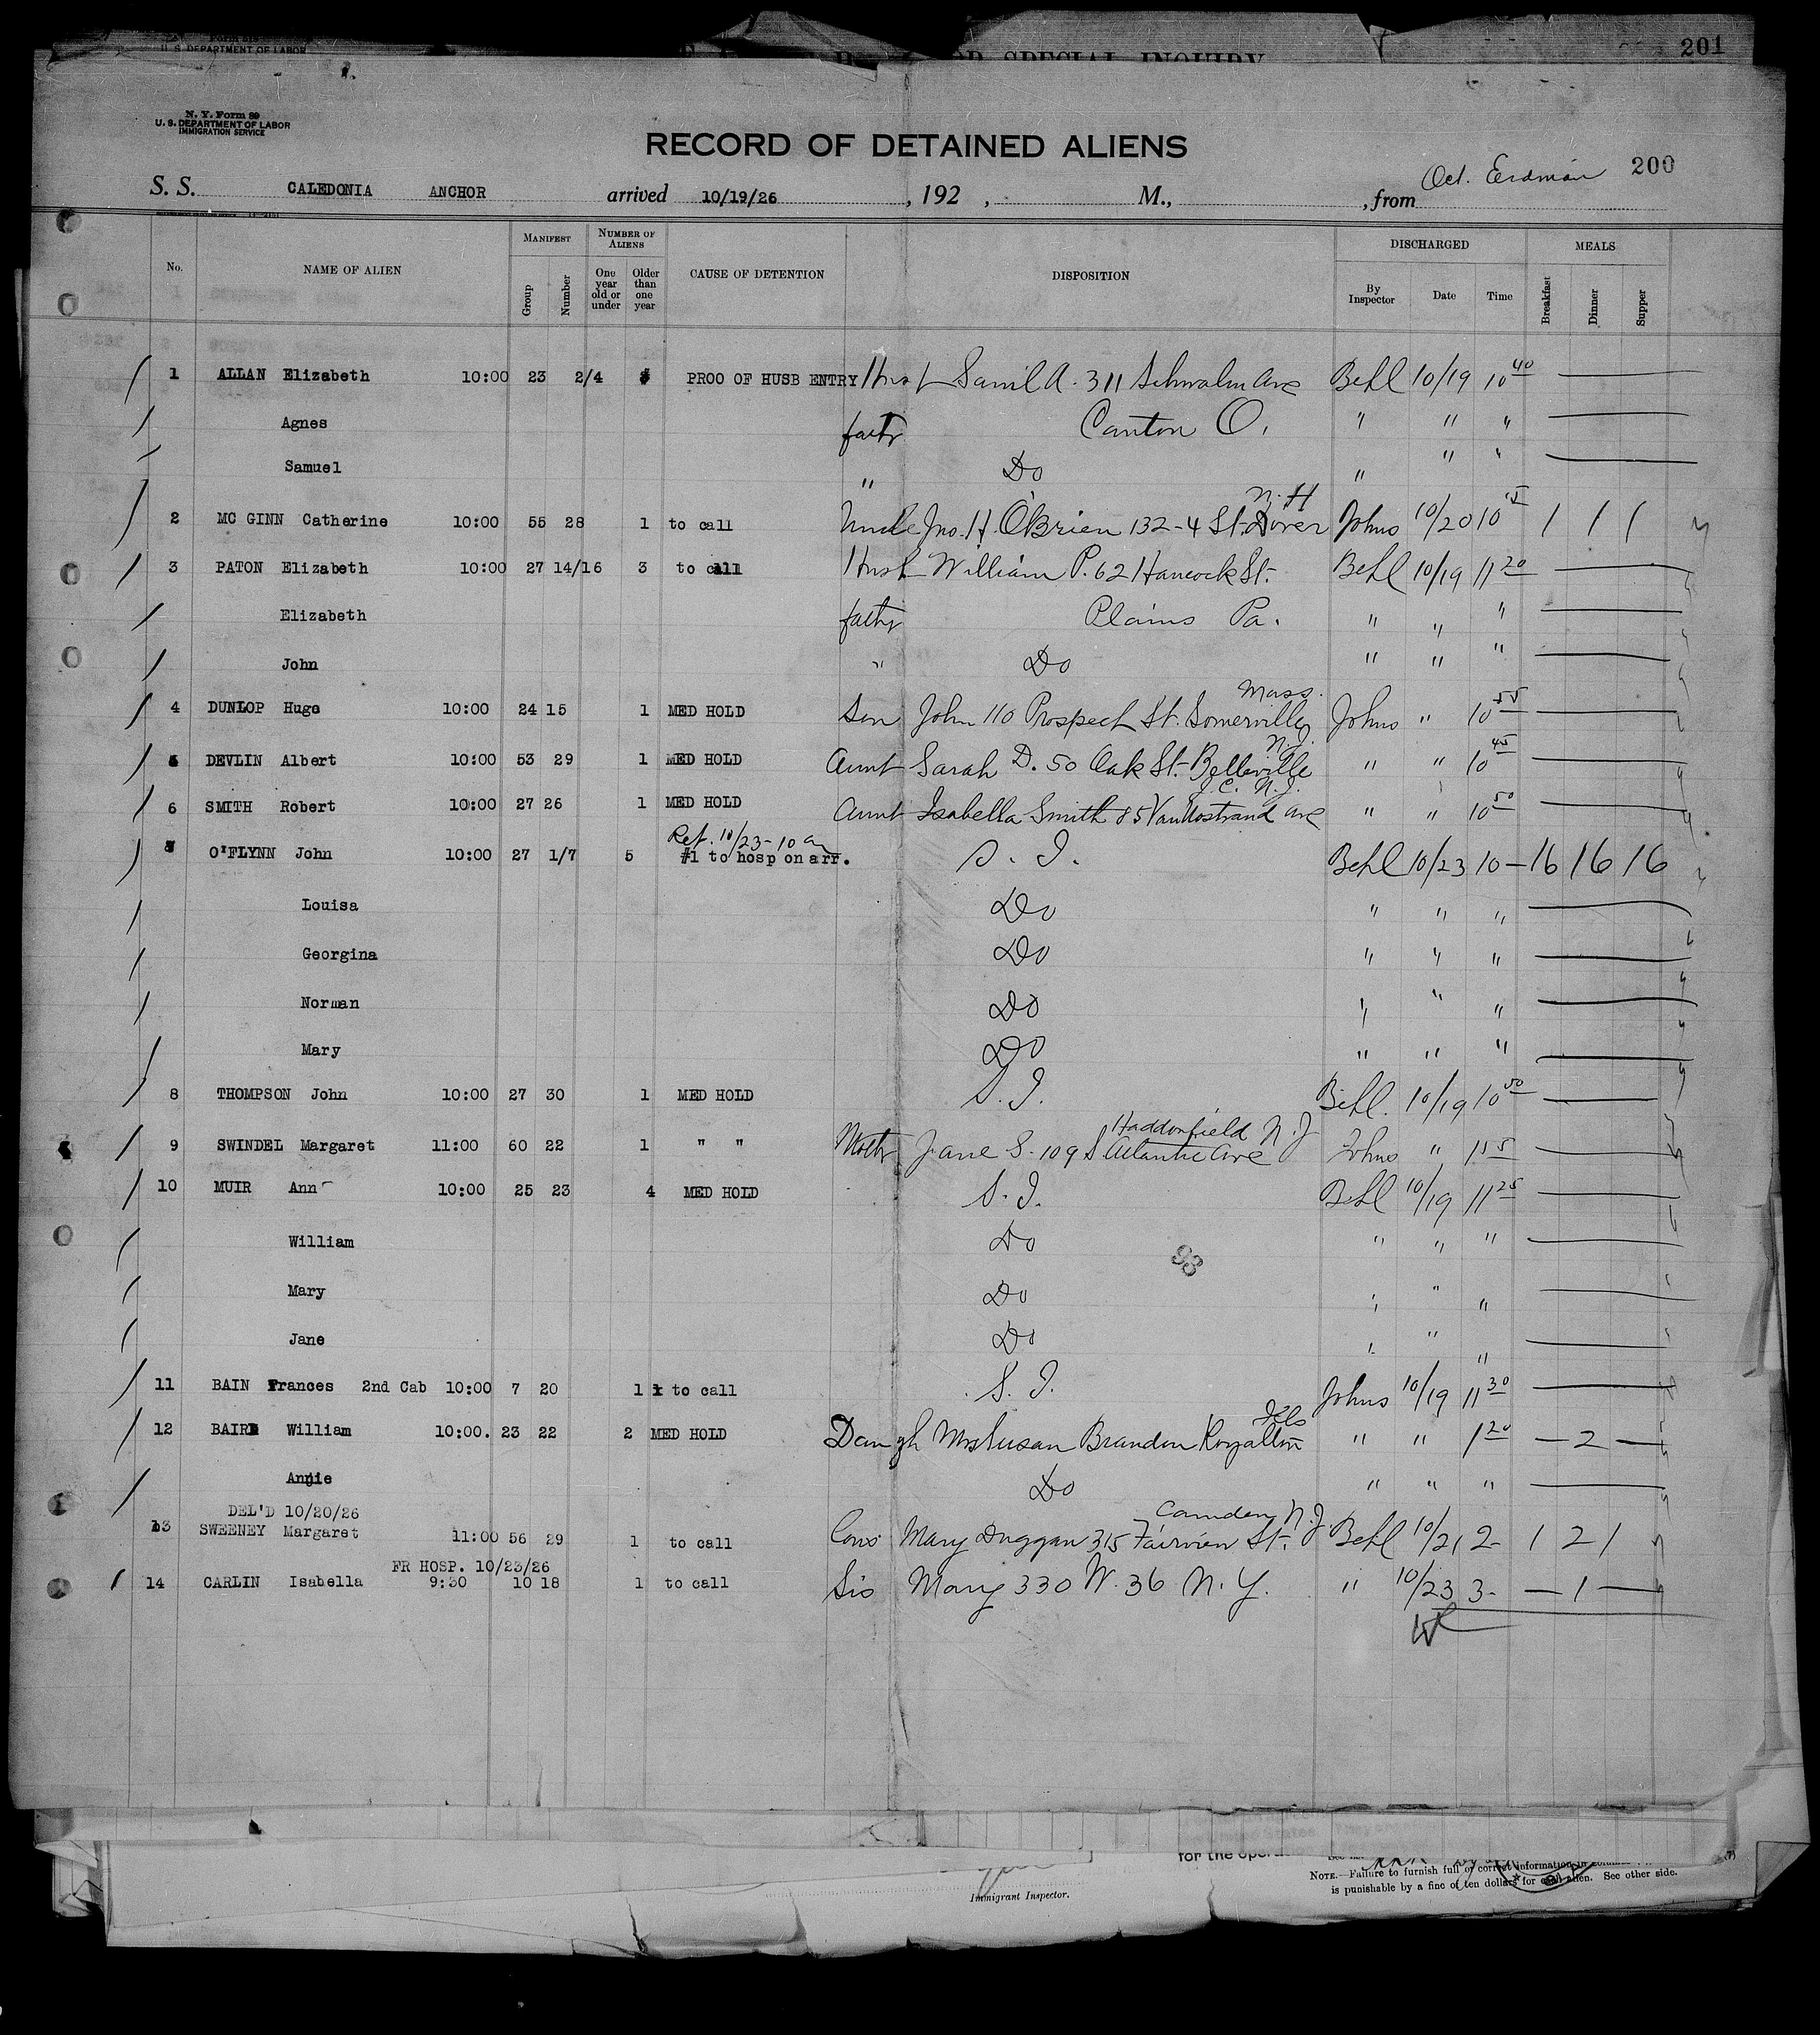 Form 518
U. S. DEPARTMENT OF LABOR
OR SPECIAL INQUIRY
201
N. Y. Form 89
U. S. DEPARTMENT OF LABOR
IMMIGRATION SERVICE
RECORD OF DETAINED ALIENS
200
Oct. Erdman
S. S. CALEDONIA ANCHOR arrived 10/19/26, 192 , M., , from
No. NAME OF ALIEN MANIFEST Group Number NUMBER OF ALIENS One year old or under Older than one year CAUSE OF DETENTION DISPOSITION DISCHARGED By Inspector Date Time MEALS Breakfast Dinner Supper
1 ALLAN Elizabeth 10:00 23 2/4 PROO OF HUSB ENTRY Husb Saml A. 311 Schwalm Ave Behl 10/19 10 40
Agnes fathr Canton O. " " "
Samuel " Do " " "
N. H
2 MC GINN Catherine 10:00 55 28 1 to call Uncle Jno. H. O'Brien 132-4 St. Dover Johns 10/20 10 15 1 1 1
3 PATON Elizabeth 10:00 27 14/16 3 to call Husb William P. 62 Hancock St. Behl 10/19 11 20
Elizabeth fathr Plains Pa. " " "
John " Do " " "
Mass.
4 DUNLOP Hugo 10:00 24 15 1 MED HOLD Son John 110 Prospect St. Somerville Johns " 10 55
N.J.
5 DEVLIN Albert 10:00 53 29 1 MED HOLD Aunt Sarah D. 50 Oak St. Belleville " " 10 45
J.C. N.J.
6 SMITH Robert 10:00 27 26 1 MED HOLD Aunt Isabella Smith 85 Van Nostrand Ave " " 10 50
Ret. 10/23-10 am
7 O'FLYNN John 10:00 27 1/7 5 #1 to hosp on arr. S. I. Behl 10/23 10 - 16 16 16
Louisa Do " " "
Georgina Do " " "
Norman Do " " "
Mary Do " " "
8 THOMPSON John 10:00 27 30 1 MED HOLD S. I. Behl. 10/19 10 50
Haddonfield N. J
9 SWINDEL Margaret 11:00 60 22 1 " " Mothr Jane S. 109 S Atlantic Ave Johns " 1 55
10 MUIR Ann 10:00 25 23 4 MED HOLD S. I. Behl 10/19 11 25
William Do " " "
88
Mary Do " " "
Jane Do " " "
11 BAIN Frances 2nd Cab 10:00 7 20 1 to call S. I. Johns 10/19 11 30
Ills
12 BAIRD William 10:00. 23 22 2 MED HOLD Daugh Mrs Susan Brandon Royalton " " 1 20 — 2 —
Annie Do " " "
DEL'D 10/20/26
Camden N. J.
13 SWEENEY Margaret 11:00 56 29 1 to call Cous Mary Duggan 315 Fairview St. Behl 10/21 2- 1 2 1
FR HOSP. 10/23/26
14 CARLIN Isabella 9:30 10 18 1 to call Sis Mary 330 W. 36 N. Y. " 10/23 3- — 1 —
for the oper
Immigrant Inspector.
NOTE.—Failure to furnish full or correct information in
is punishable by a fine of ten dollars for each alien. See other side.